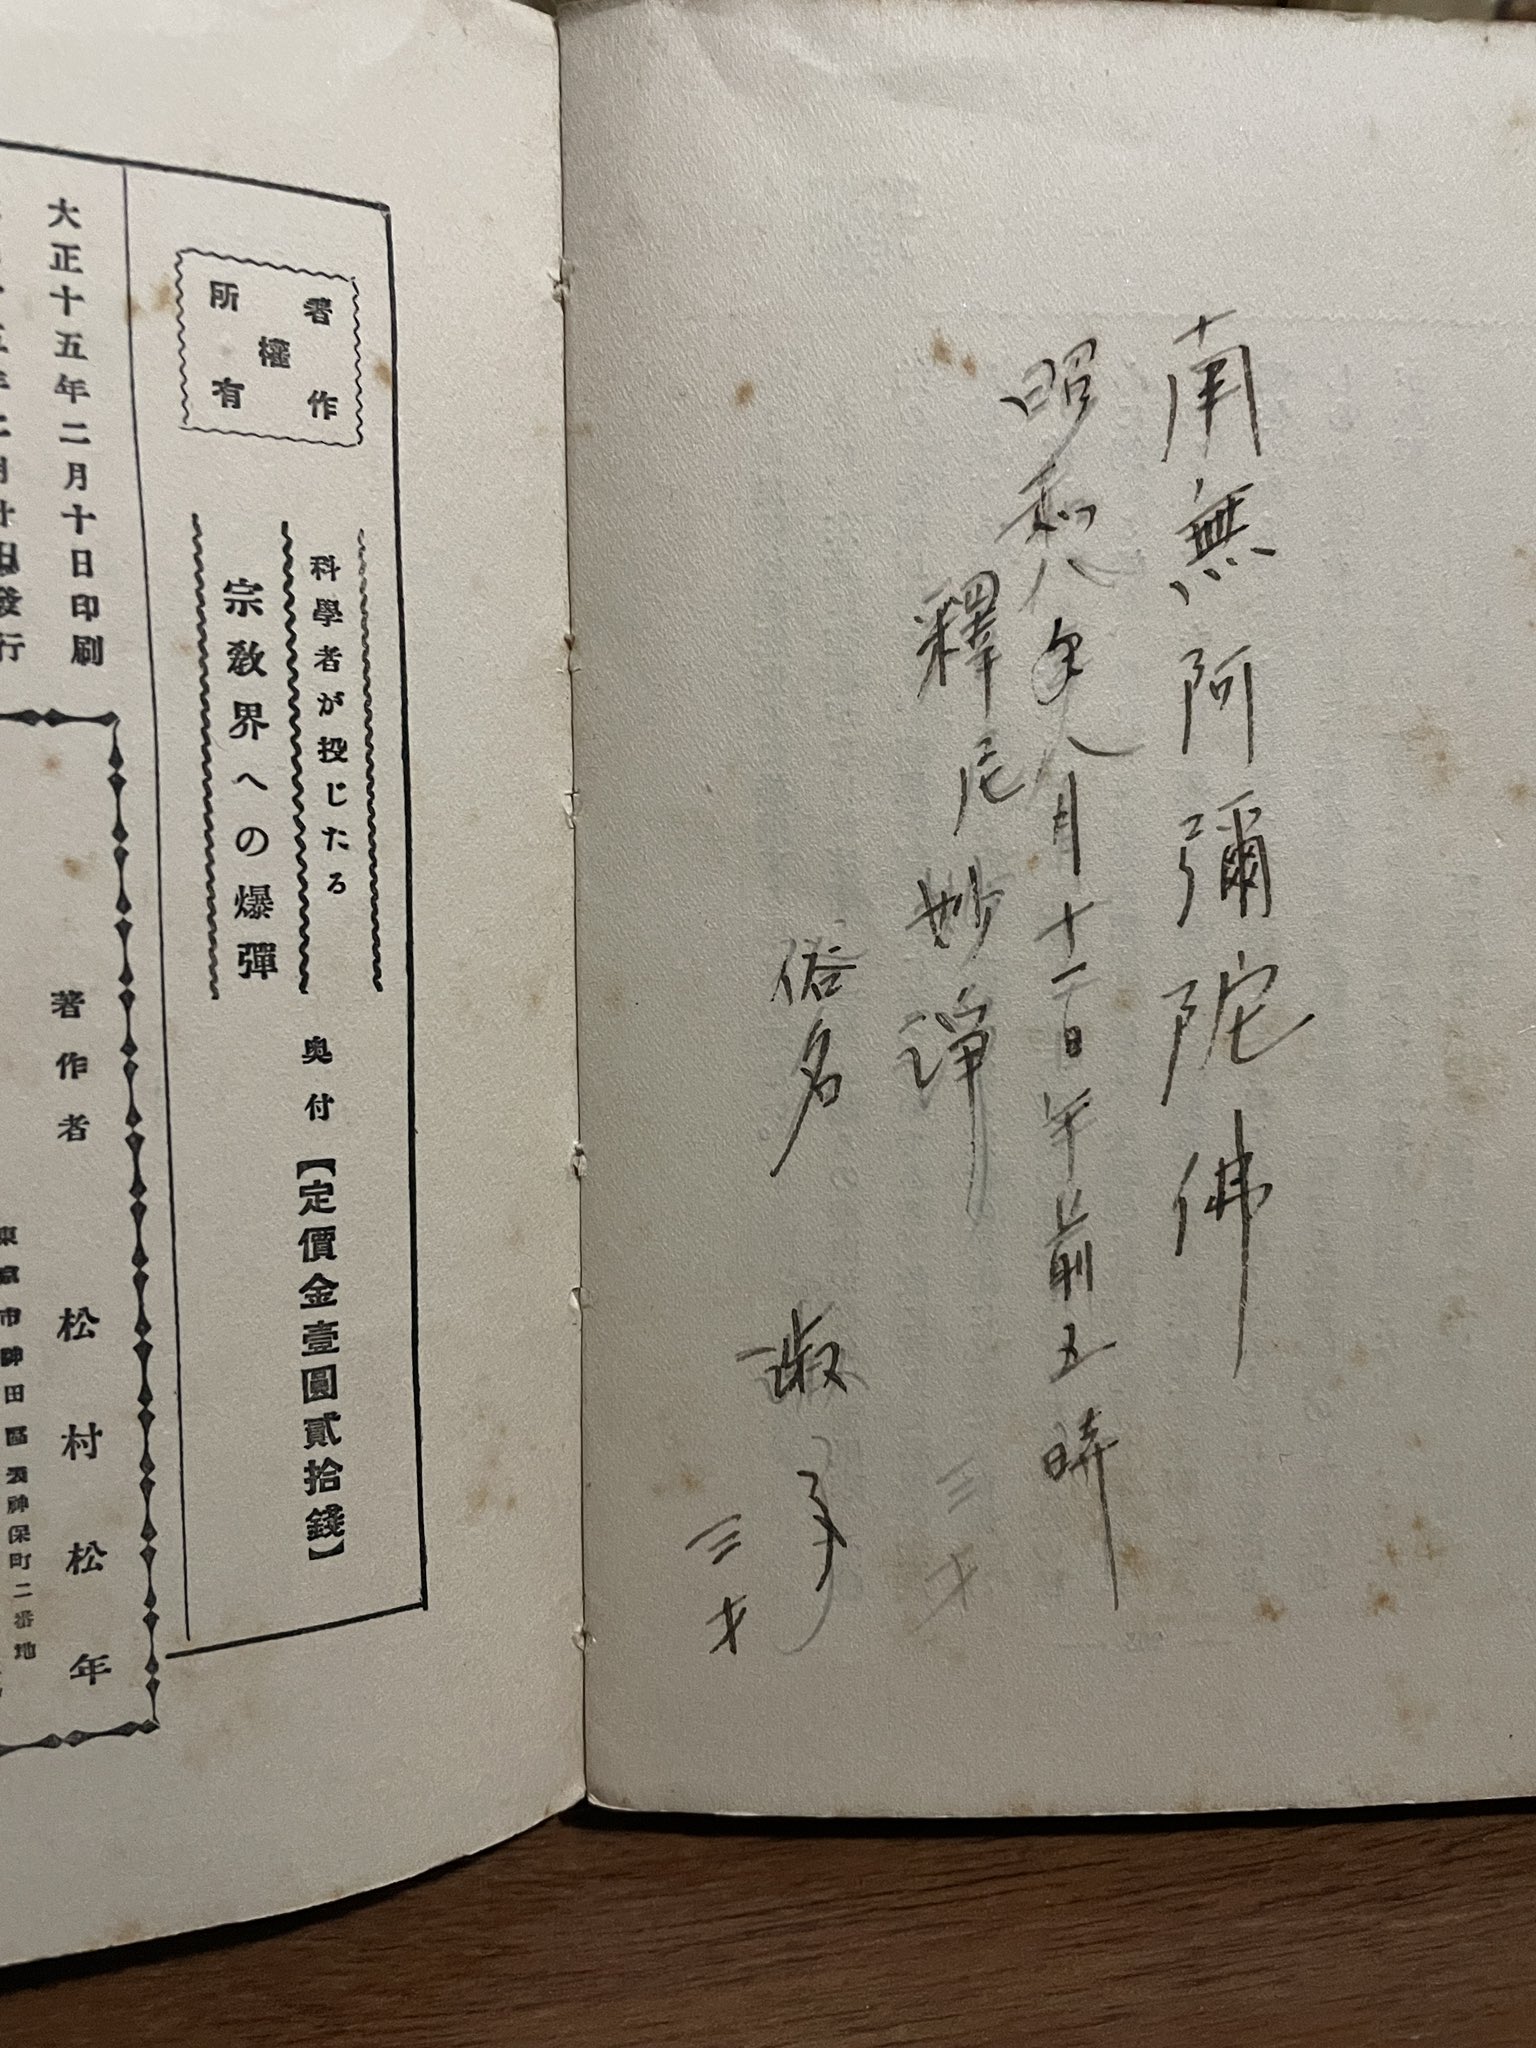 南無阿彌陀佛
昭和八年八月十一日午前五時
釋尼妙諄
俗名 淑子
三才
三才
著作
權
所有
科學者が投じたる
宗教界への爆彈
奥付
【定價金壹圓貳拾錢】
大正十五年二月十日印刷
著作者 松村松年
東京市神田區表神保町二番地